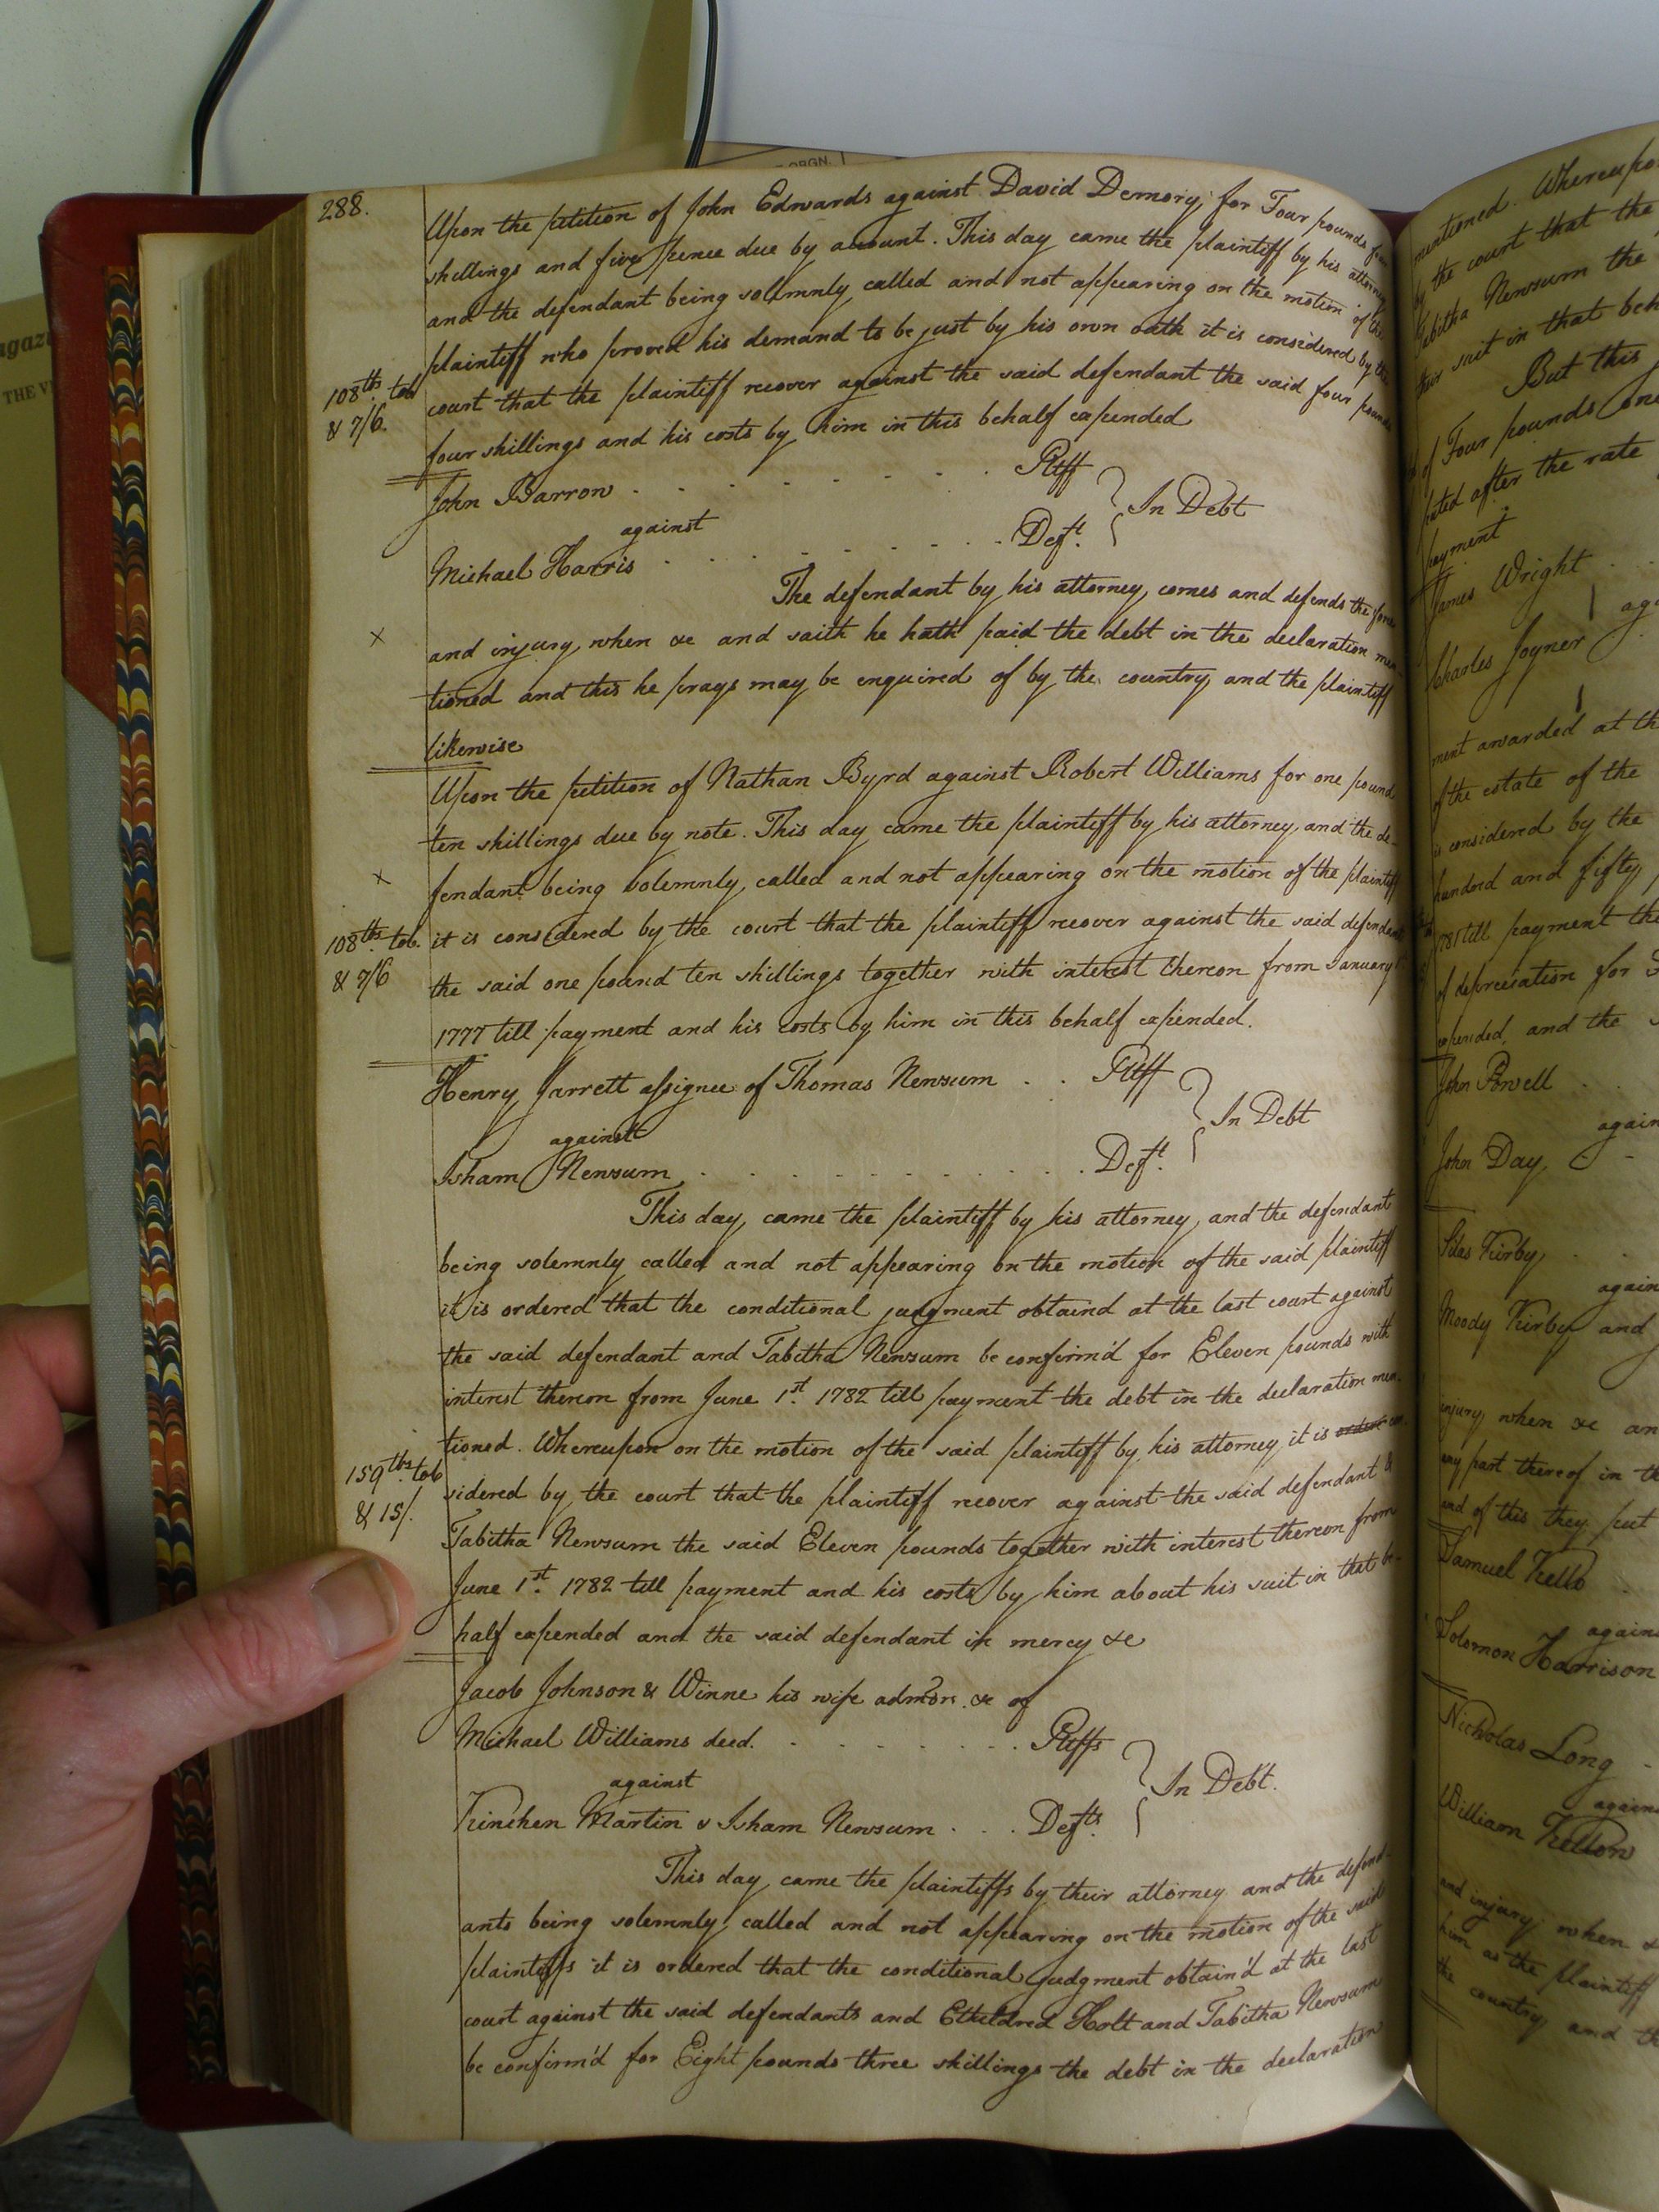 ORGN.
agazi
THE V
288.
Upon the petition of John Edwards against David Demory for Four pounds four
shillings and five pence due by account. This day came the plaintiff by his attorney
and the defendant being solemnly called and not appearing on the motion of the
plaintiff who proved his demand to be just by his own oath it is considered by the
108 lbs. tob
court that the plaintiff recover against the said defendant the said four pounds
& 7/6.
four shillings and his costs by him in this behalf expended
John Barron . . . . . . . Pltff
against } In Debt
Michael Harris . . . . . . . Deft.
The defendant by his attorney comes and defends the force
x
and injury when &c and saith he hath paid the debt in the declaration men
tioned and this he prays may be enquired of by the country and the plaintiff
likewise
Upon the petition of Nathan Byrd against Robert Williams for one pound
ten shillings due by note. This day came the plaintiff by his attorney and the de-
x
fendant being solemnly called and not appearing on the motion of the plaintiff
108 lbs. tob.
it is considered by the court that the plaintiff recover against the said defendant
& 7/6
the said one pound ten shillings together with interest thereon from January
1777 till payment and his costs by him in this behalf expended.
Henry Jarrett assignee of Thomas Newsum . . Pltff
against } In Debt
Isham Newsum . . . . . . . . . . Deft.
This day came the plaintiff by his attorney and the defendant
being solemnly called and not appearing on the motion of the said plaintiff
it is ordered that the conditional judgment obtaind at the last court against
the said defendant and Tabitha Newsum be confirm'd for Eleven pounds with
interest thereon from June 1st. 1782 till payment the debt in the declaration men-
tioned. Whereupon on the motion of the said plaintiff by his attorney it is order con
159 lbs. tob
sidered by the court that the plaintiff recover against the said defendant &
& 15/.
Tabitha Newsum the said Eleven pounds together with interest thereon from
June 1st. 1782 till payment and his costs by him about his suit in that be-
half expended and the said defendant in mercy &c
Jacob Johnson & Winne his wife admors. &c of
Michael Williams decd. . . . . . . . Pltffs
against } In Debt.
Kinchen Martin & Isham Newsum . . . Defts.
This day came the plaintiffs by their attorney and the defend-
ants being solemnly called and not appearing on the motion of the said
plaintiffs it is ordered that the conditional judgment obtain'd at the last
court against the said defendants and Etheldred Holt and Tabitha Newsum
be confirm'd for Eight pounds three shillings the debt in the declaration
mentioned. Whereupo
by the court that the
Tabitha Newsum the
their suit in that beh
But this
of Four pounds one
pated after the rate
payment
James Wright . .
aga
Charles Joyner
ment awarded at th
of the estate of the
is considered by the
hundred and fifty
till payment the
of depreciation for
expended, and the
John Powell .
again
John Day . -
Silas Kirby . .
again
Moody Kirby and
injury when &c an
any part thereof in th
and of this they put
Samuel Kello
again
Solomon Harrison
Nicholas Long -
again
William Kello
and injury when &
him as the plaintiff
the country and th